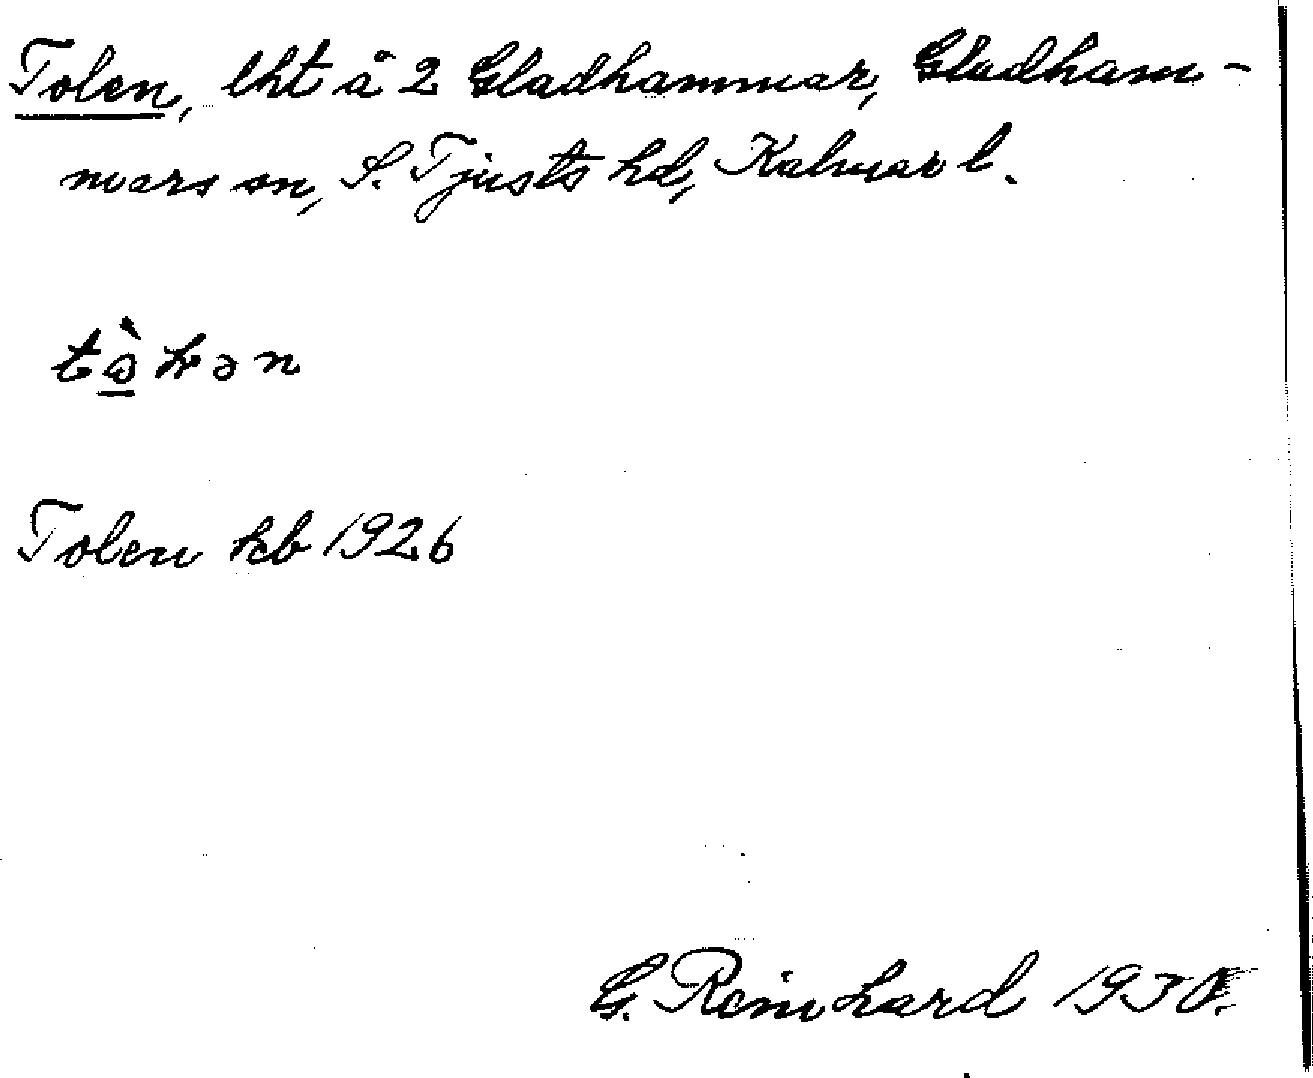 Tolen, lht å 2 Gladhammar, Gladham-
mars sn, S. Tjusts hd, Kalmar l.
tò̲ɫən
Tolen kb 1926
G. Reinhard 1930.